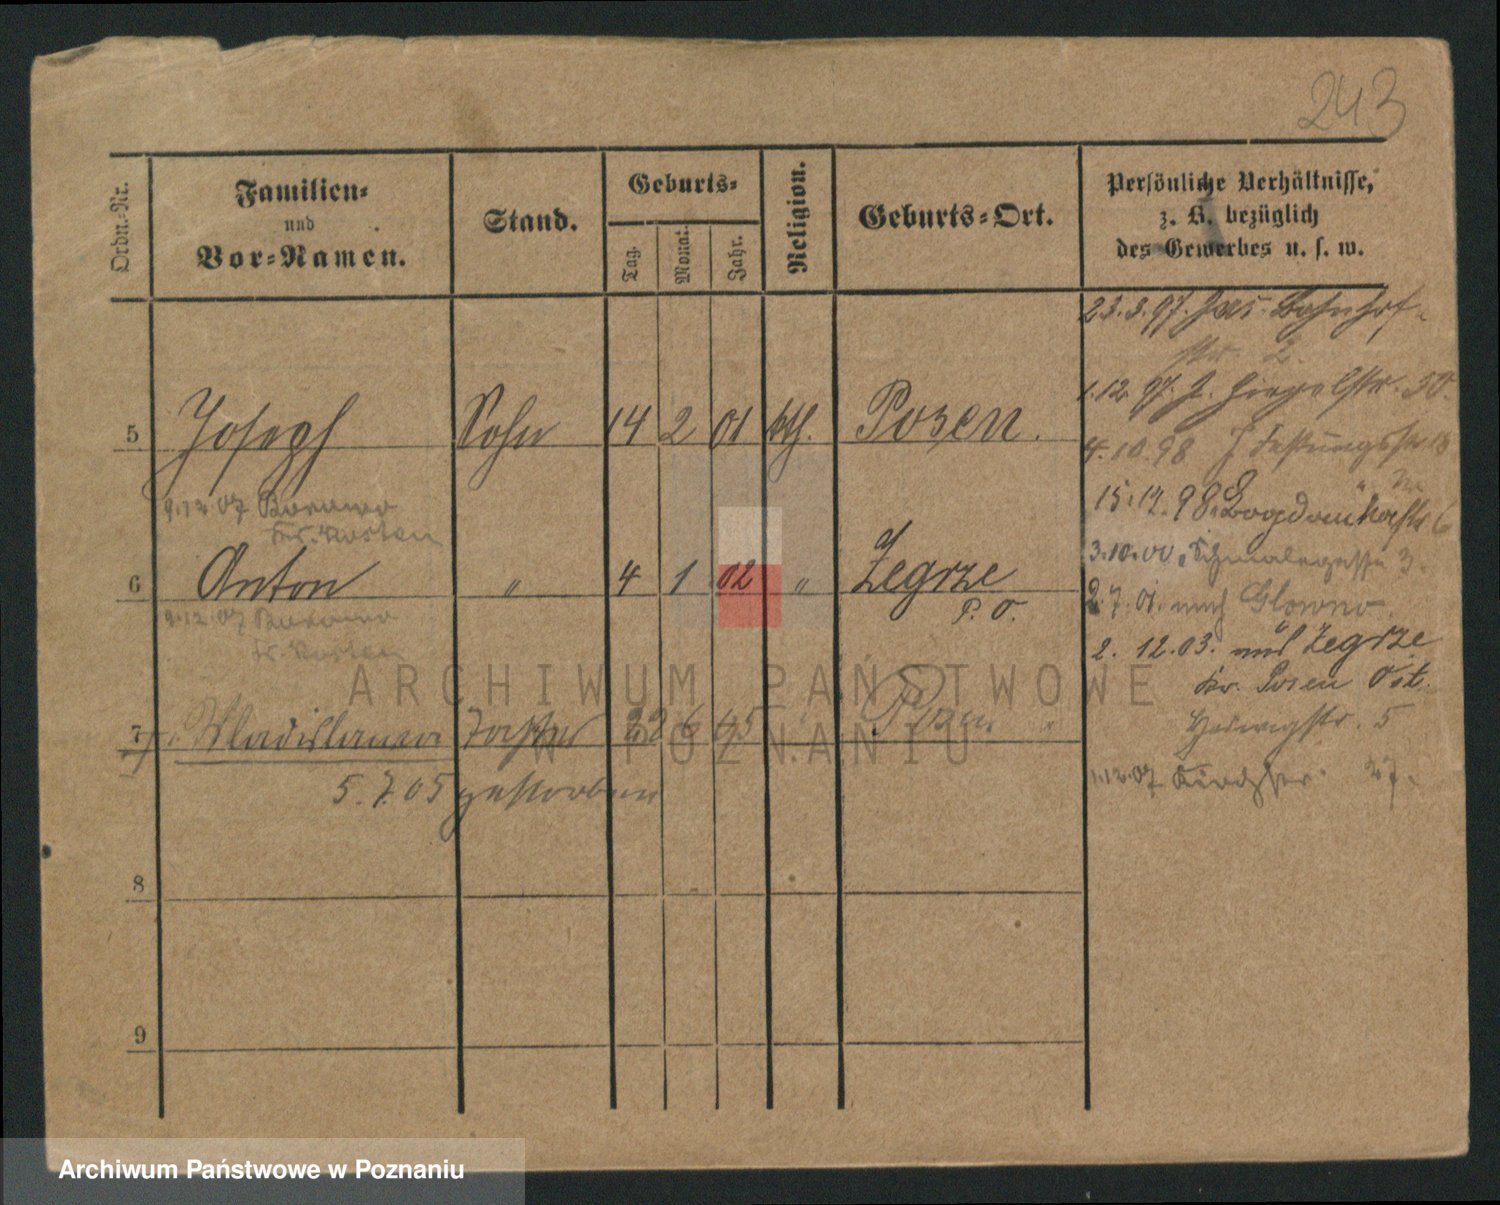 243
Ordn.-Nr.
Familien-
und
Vor-Namen.
Stand.
Geburts-
Tag.
Monat.
Jahr.
Religion.
Geburts-Ort.
Persönliche Verhältnisse,
z. B. bezüglich
des Gewerbes u. s. w.
23. 3. 97. Bahnhof-
str. 2.
1. 12. 97. J. Ziegelstr. 30.
5 Joseph Sohn 14 2 01 kth. Posen.
4. 10. 98 J Festungsstr
9.12.07 Borowo
Kr. Kosten
15. 12. 98. Bogdankastr. 6
3. 10. 00. Schmalegasse 3.
6 Anton " 4 1 02 " Zegrze
P. O.
2 7. 01. nach Glowno.
9.12.07 Borowo
Kr. Kosten
2. 12. 03. aus Zegrze
Kr. Posen Ost.
ARCHIWUM PAŃSTWOWE
W POZNANIU
7 Wladislawa Tochter 22 6 05 Posen
Hedwigstr. 5
5. 7. 05 gestorben
1.12.07 27.
8
9
Archiwum Państwowe w Poznaniu